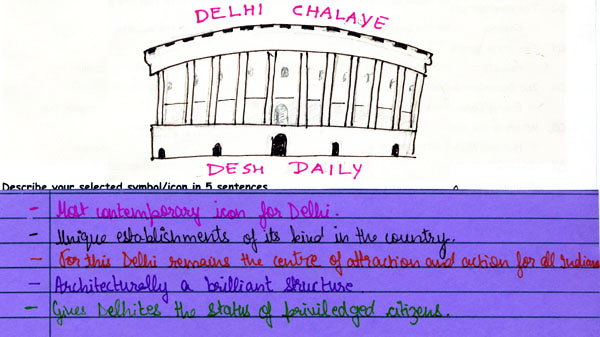 DELHI CHALAYE
DESH DAILY
Describe your selected symbol/icon in 5 sentences
- Most contemporary icon for Delhi.
- Unique establishments of its kind in the country.
- For this Delhi remains the centre of attraction and action for all Indians
- Architecturally a brilliant structure.
- Gives Delhites the status of priviledged citizens.